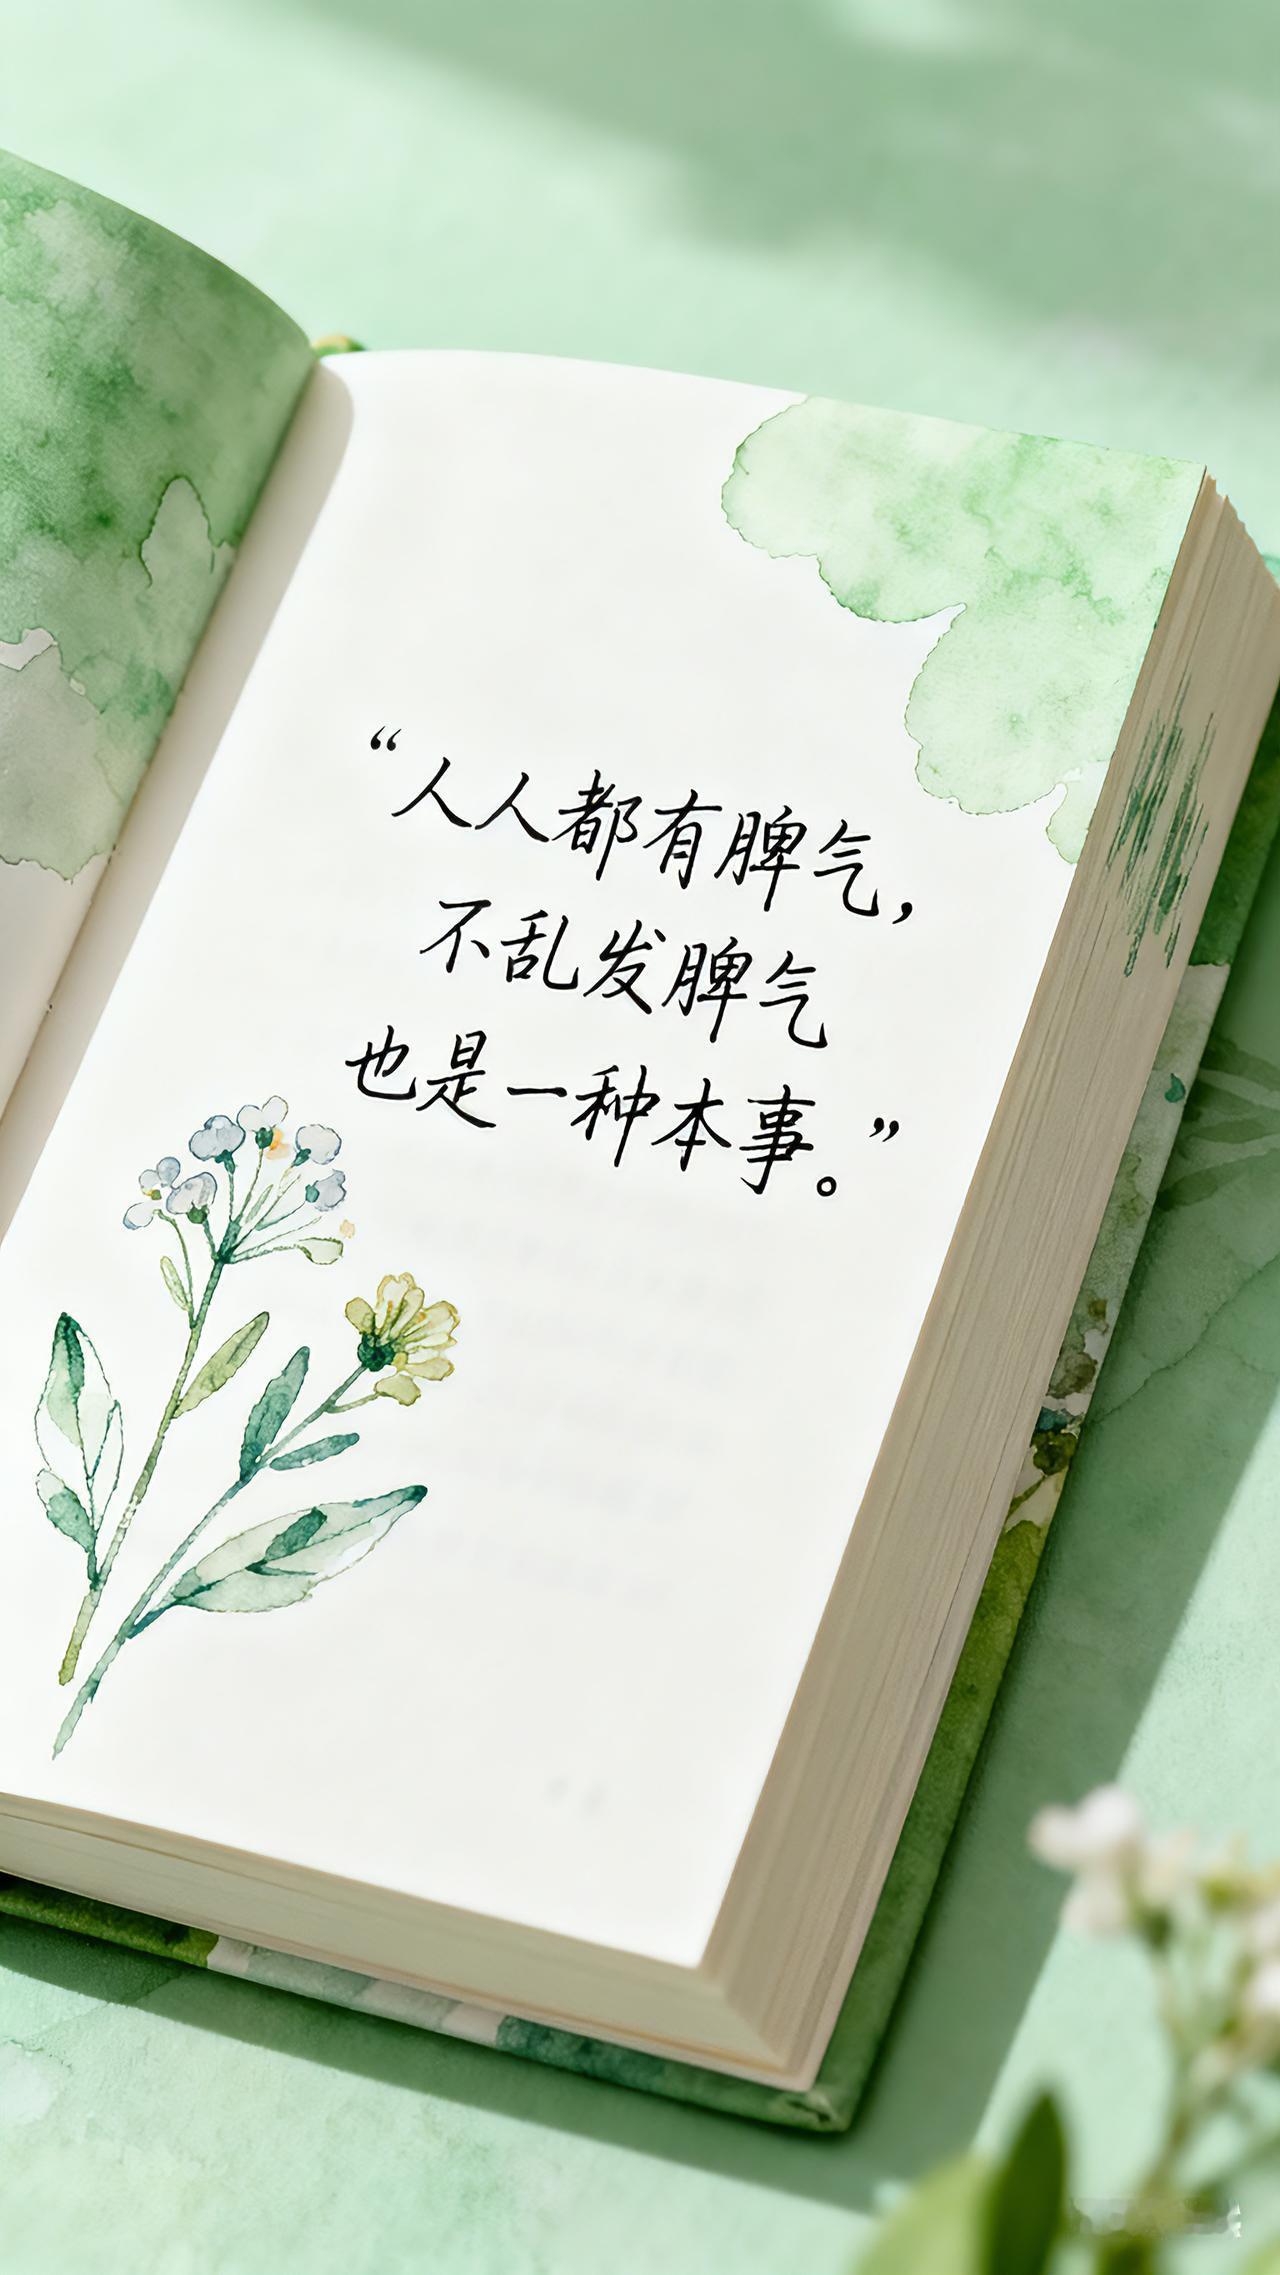 “人人都有脾气，
不乱发脾气
也是一种本事。”